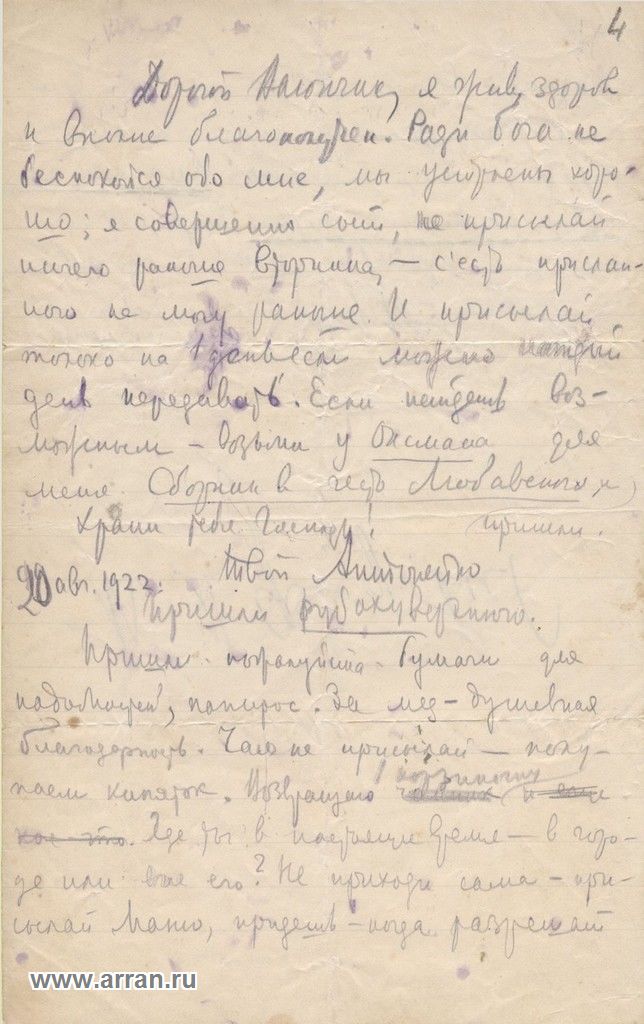 4
Дорогой я жив, здоров
и вполне благополучен. Ради бога не
беспокойся обо мне, мы устроены хоро-
шо; я совершенно сыт, не присылай
ничего раньше вторника, — съесть прислан-
ного не могу раньше. И присылай
только на 1 день если можно каждый
день передавать. Если найдешь воз-
можным — возьми у для
меня Сборник в честь Любавского и
Храни тебя Господь! пришли.
20 авг. 1922. Твой
Пришли рубаху
Пришли пожалуйста бумаги для
надобностей, папирос. За мед — душевная
благодарность. Чаю не присылай — поку-
паем кипяток. Возвращаю 1 корзиночку
Где ты в настоящее время — в горо-
де или вне его? Не приходи сама — при-
сылай Маню, придешь — когда разрешат
www.arran.ru